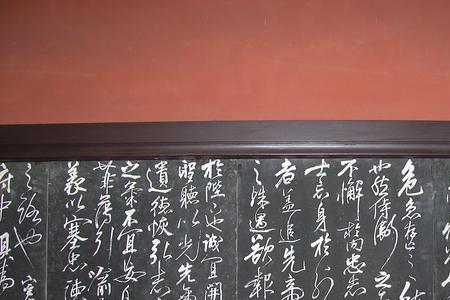 危急存亡之秋
也然侍衛之
不懈於內忠志
士忘身於外
者蓋追先帝
之殊遇欲報
於陛下也誠宜開
聖聽以光先帝
遺德恢弘志
之氣不宜妄
菲薄引喻
義以塞忠諫
之路也宮
府中俱為